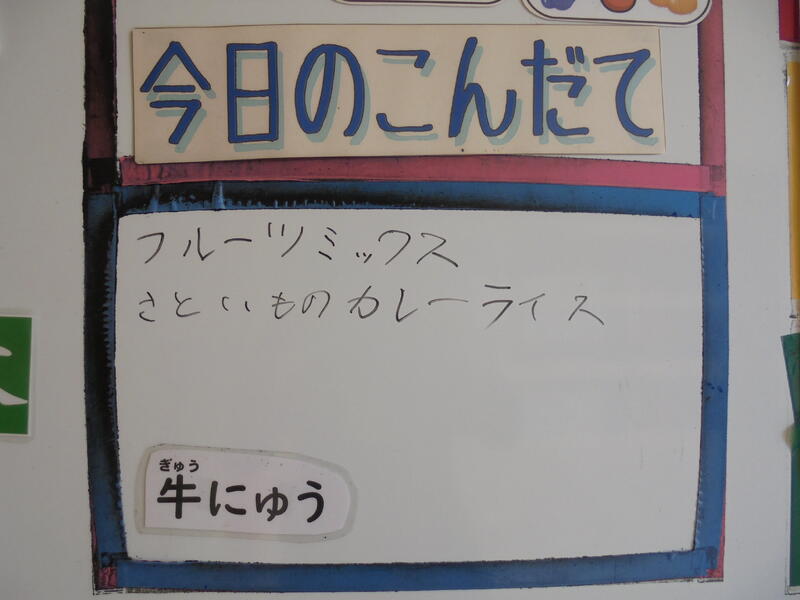 今日のこんだて
フルーツミックス
さといものカレーライス
ぎゅう
牛にゅう